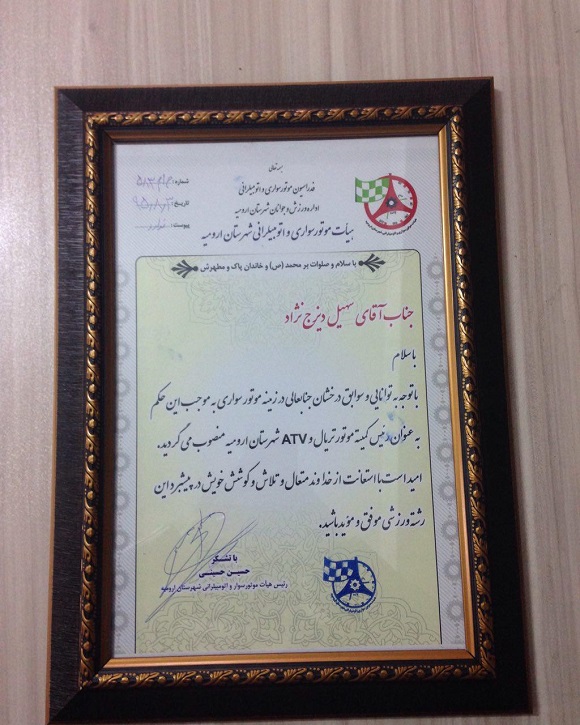 بسمه تعالی
فدراسیون موتورسواری و اتومبیلرانی
اداره ورزش و جوانان شهرستان ارومیه
هیأت موتورسواری و اتومبیلرانی شهرستان ارومیه
شماره:
تاریخ:
پیوست:
با سلام و صلوات بر محمد (ص) و خاندان پاک و مطهرش
جناب آقای سهیل دیزج نژاد
با سلام
با توجه به توانایی و سوابق درخشان جنابعالی در زمینه موتورسواری به موجب این حکم
به عنوان رئیس کمیته موتور تریال و ATV شهرستان ارومیه منصوب می گردید.
امید است با استعانت از خداوند متعال و تلاش و کوشش خویش در پیشبرد این
رشته ورزشی موفق و مؤید باشید.
با تشکر
حسین حسینی
رئیس هیات موتورسوار و اتومبیلرانی شهرستان ارومیه